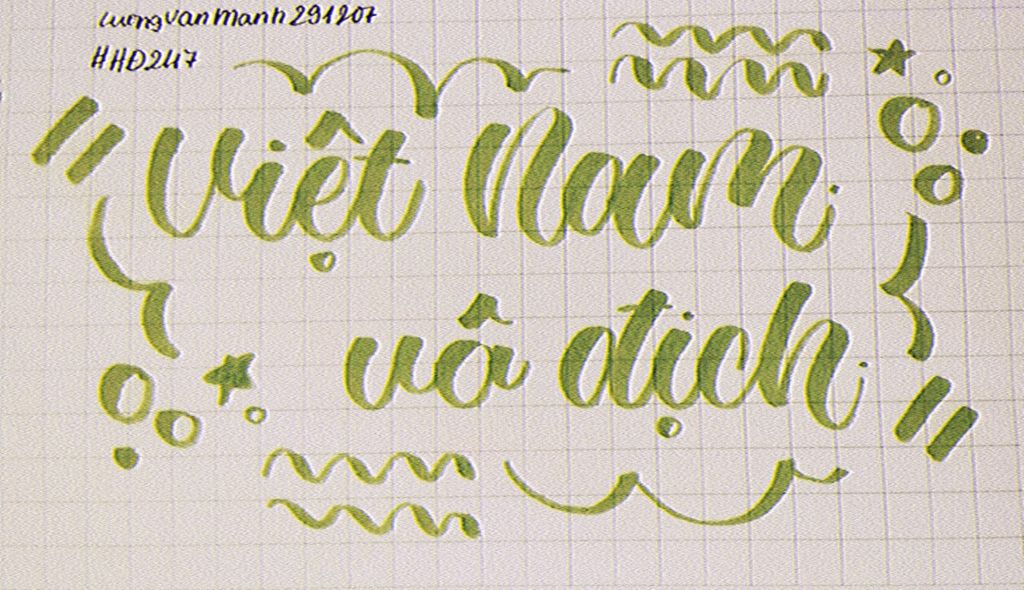 LươngVănMạnh291207
HHĐ247
Việt Nam
vô địch